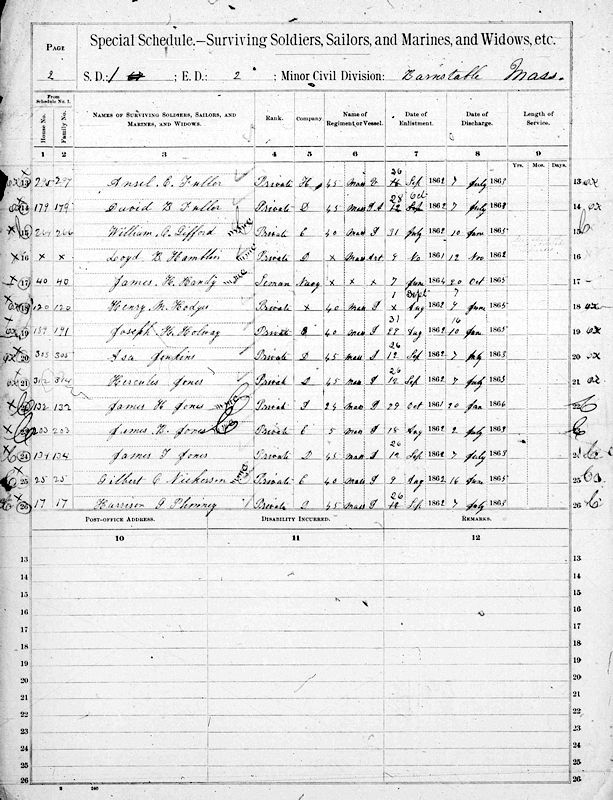 PAGE
Special Schedule.—Surviving Soldiers, Sailors, and Marines, and Widows, etc.
2 S. D.: 1 ; E. D.: 2 ; Minor Civil Division: Barnstable Mass.
From Schedule No. 1.
House No. Family No. NAMES OF SURVIVING SOLDIERS, SAILORS, AND MARINES, AND WIDOWS. Rank. Company. Name of Regiment or Vessel. Date of Enlistment. Date of Discharge. Length of Service.
Yrs. Mos. Days.
1 2 3 4 5 6 7 8 9
13 Ansel E. Fuller Private H 45 Mass 26 Sep 1862 7 July 1863 13
14 179 179 David B Fuller Private D 45 Mass 28 Oct 12 Sep 1862 7 July 1863 14
15 264 266 William Gifford Private E 40 Mass I 31 July 1862 10 Jun 1865 15
16 x x Loyd B Hamblin Private x Mass Art 9 1861 12 Nov 1862 16
17 40 40 James H Handy Seman Navy x x x 7 Jun 1864 20 Oct 1865 17
18 120 120 Henry M. Hodges Private x 40 Mass I 1 Sept x Aug 1862 7 Jun 1865 18
19 189 191 Joseph H. Holway Private B 40 Mass I 31 Aug 1862 16 10 Jun 1865 19
20 305 305 Asa Jenkins Private D 45 Mass I 26 12 Sep 1862 7 July 1863 20
21 312 314 Hercules Jones Private D 45 Mas I 26 12 Sep 1862 7 July 1863 21
22 132 132 James H Jones Privat I 24 Mass I 29 Oct 1861 20 Jan 1866 22
23 203 203 James B. Jones Private E 5 Mas I 18 Aug 1862 2 July 1863 23
24 134 134 James T Jones Private D 45 Mass I 26 12 Sep 1862 7 July 1863 24
25 25 25 Gilbert C Nickerson Private E 40 Mass I 9 Aug 1862 16 Jun 1865 25
26 17 17 Harrison G Phinney Private D 45 Mass I 26 12 Sep 1862 7 July 1863 26
POST-OFFICE ADDRESS. DISABILITY INCURRED. REMARKS.
10 11 12
13 13
14 14
15 15
16 16
17 17
18 18
19 19
20 20
21 21
22 22
23 23
24 24
25 25
26 26